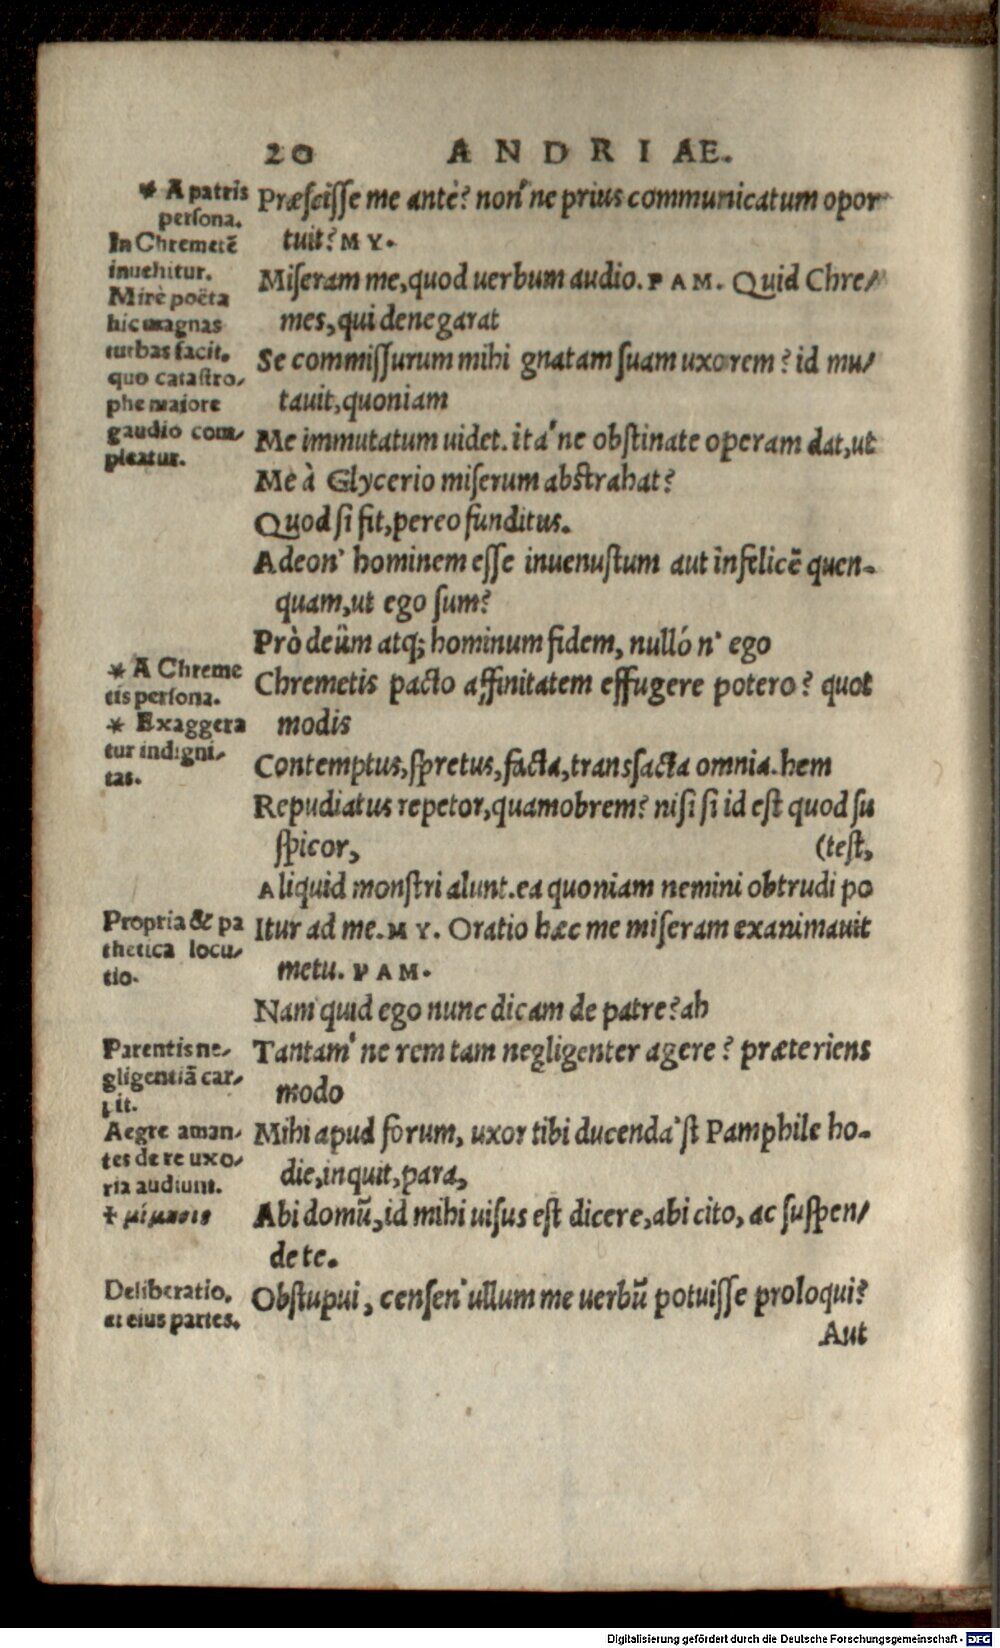 20 ANDRIAE.
* A patris
persona.
In Chremetẽ
inuehitur.
Mirè poëta
hic magnas
turbas facit,
quo catastro-
phe maiore
gaudio com-
pleatur.
Præscisse me antè? non'ne prius communicatum opor
tuit? MY.
Miseram me, quod uerbum audio. PAM. Quid Chre-
mes, qui denegarat
Se commissurum mihi gnatam suam uxorem? id mu-
tauit, quoniam
Me immutatum uidet. ita'ne obstinate operam dat, ut
Me à Glycerio miserum abstrahat?
Quod si fit, pereo funditus.
Adeon' hominem esse inuenustum aut infelicẽ quen-
quam, ut ego sum?
Prò deûm atq; hominum fidem, nulló n' ego
* A Chreme
tis persona.
* Exaggera
tur indigni-
tas.
Chremetis pacto affinitatem effugere potero? quot
modis
Contemptus, spretus, facta, transsacta omnia. hem
Repudiatus repetor, quamobrem? nisi si id est quod su
spicor, (test,
Aliquid monstri alunt. ea quoniam nemini obtrudi po
Propria & pa
thetica locu-
tio.
Itur ad me. MY. Oratio hæc me miseram exanimauit
metu. PAM.
Nam quid ego nunc dicam de patre? ah
Parentis ne-
gligentiã car-
pit.
Tantam'ne rem tam negligenter agere? præteriens
modo
Aegre aman-
tes de re uxo-
ria audiunt.
Mihi apud forum, uxor tibi ducenda'st Pamphile ho-
die, inquit, para,
+ μίμησις
Abi domũ, id mihi uisus est dicere, abi cito, ac suspen-
de te.
Deliberatio,
et eius partes.
Obstupui, censen' ullum me uerbũ potuisse proloqui?
Aut
Digitalisierung gefördert durch die Deutsche Forschungsgemeinschaft - DFG